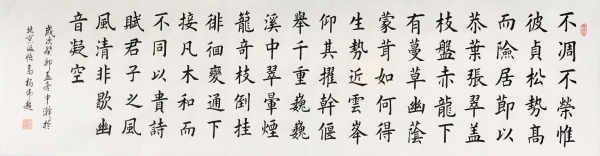 不凋不榮惟
彼貞松勢高
而險居節以
恭葉張翠蓋
枝盤赤龍下
有蔓草幽蔭
蒙茸如何得
生勢近雲峯
仰其擢幹偃
舉千重巍巍
溪中翠暈煙
籠奇枝倒挂
徘徊夔通下
接凡木和而
不同以貴詩
賦君子之風
風清非歇幽
音凝空
歲次癸卯孟冬中澣於
北京